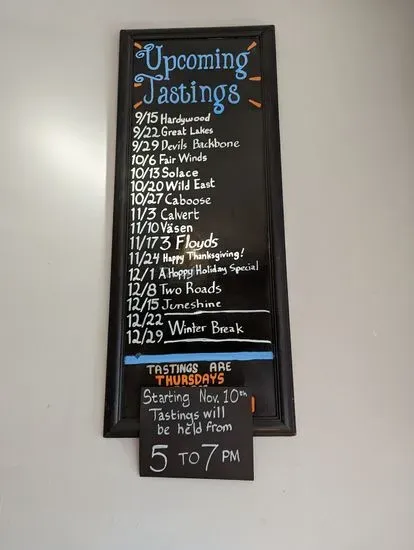 Upcoming
Tastings
9/15 Hardywood
9/22 Great Lakes
9/29 Devils Backbone
10/6 Fair Winds
10/13 Solace
10/20 Wild East
10/27 Caboose
11/3 Calvert
11/10 Väsen
11/17 3 Floyds
11/24 Happy Thanksgiving!
12/1 A Hoppy Holiday Special
12/8 Two Roads
12/15 Juneshine
12/22
Winter Break
12/29
TASTINGS ARE
THURSDAYS
Starting Nov. 10th
Tastings will
be held from
5 TO 7 PM